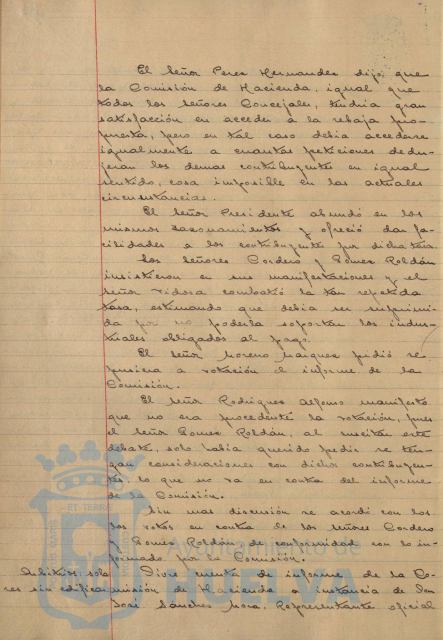 El Señor Perez Hernandez dijo que
la Comisión de Hacienda, igual que
todos los señores Concejales, tendria gran
satisfacción en acceder a la rebaja pro-
puesta, pero en tal caso debia accederse
igualmente a cuantas peticiones dedu-
jeran los demas contribuyentes en igual
sentido, cosa imposible en las actuales
circunstancias.
El Señor Presidente abundó en los
mismos razonamientos y ofreció dar fa-
cilidades a los contribuyentes por dicha tasa
Los Señores Cordero y Gomez Roldán
insistieron en sus manifestaciones y el
Señor Vidosa combatió la tan repetida
tasa, estimando que debia ser suprimi-
da por no poderla soportar los indus-
triales obligados al pago.
El Señor Moreno Marquez pidió se
pusiera a votación el informe de la
Comisión.
El Señor Rodriguez Alfonso manifestó
que no era procedente la votación, pues
el Señor Gomez Roldán, al suscitar este
debate, solo habia querido pedir se ten-
gan consideraciones con dichos contribuyen-
tes, lo que no va en contra del informe
de la Comisión.
Sin mas discusión se acordó con los
los votos en contra de los Señores Cordero
y Gomez Roldán, de conformidad con lo in-
formado por la Comisión.
Arbitrios: sola
res sin edificar
Dióse cuenta de informe de la Co-
misión de Hacienda a instancia de Don
José Sánchez Mora, Representante oficial
Ayuntamiento de
HUELVA